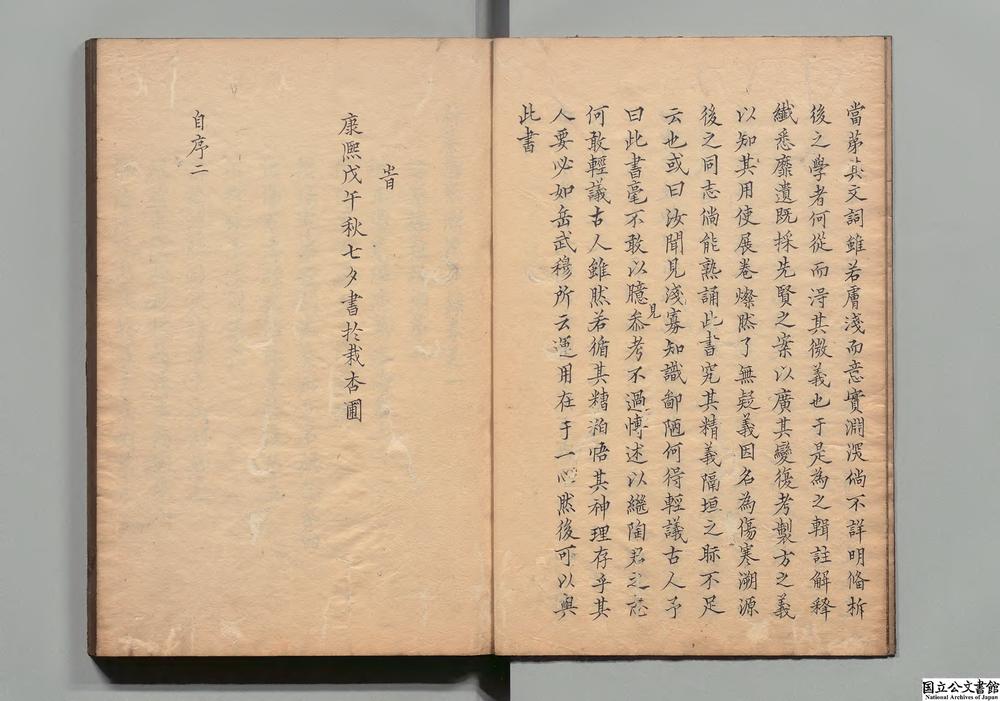 當第其文詞雖若膚淺而意實淵深倘不詳明條析
後之學者何從而淂其微義也于是為之輯註解釋
纖悉靡遺既採先賢之案以廣其變復考製方之義
以知其用使展卷燦然了無疑義因名為傷寒溯源
後之同志倘能熟誦此書究其精義隔垣之眎不足
云也或曰汝聞見淺寡知識鄙陋何得輕議古人予
曰此書毫不敢以臆見叅考不過慱述以繼陶君之志
何敢輕議古人雖然若循其糟粕悟其神理存乎其
人要必如岳武穆所云運用在于一心然後可以與
此書
旹
康熙戊午秋七夕書於栽杏圃
自序二
国立公文書館
National Archives of Japan